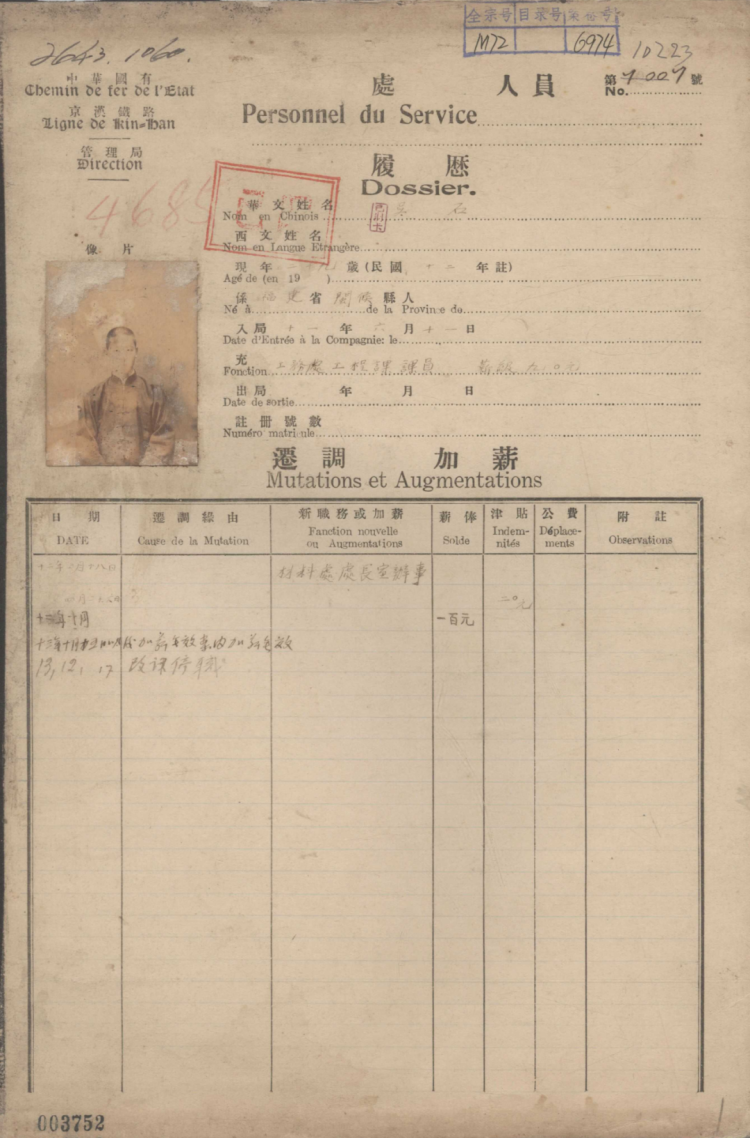 全宗号 目录号 案卷号
M72 6974
2643. 1060.
10223
中華國有
Chemin de fer de l'Etat
京漢鐵路
Ligne de Kin-Han
管理局
Direction
處 人員
Personnel du Service
第 7007 號
No.
履歷
Dossier.
4685
華文姓名 石
Nom en Chinois
西文姓名
Nom en Langue Etrangère
像片
現年 歲(民國 十二 年註)
Agé de (en 19 )
係 福建 省 閩侯 縣人
Né à de la Province de
入局 十一 年 六 月 十一 日
Date d'Entrée à la Compagnie: le
充 工務處工程課課員 薪級
Fonction
出局 年 月 日
Date de sortie
註冊號數
Numéro matricule
遷調 加薪
Mutations et Augmentations
日期 遷調緣由 新職務或加薪 薪俸 津貼 公費 附註
DATE Cause de la Mutation Fonction nouvelle ou Augmentations Solde Indemnités Déplacements Observations
十二年二月十八日 材料處處長室辦事
二〇元
十三年十月 一百元
加薪無效
13, 12, 17 改課停職
003752
1